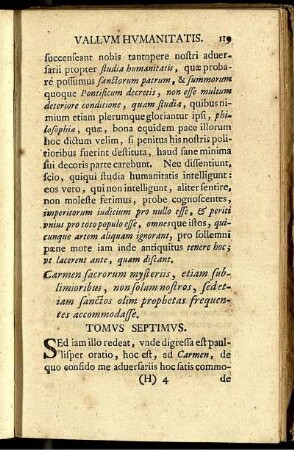 VALLVM HVMANITATIS. 119
succenseant nobis tantopere nostri adver-
sarii propter studia humanitatis, quæ proba-
re possumus sanctorum patrum, & summorum
quoque Pontificum decretis, non esse multum
deteriore conditione, quam studia, quibus ni-
mium etiam plerumque gloriantur ipsi, phi-
losophia, quæ, bona equidem pace illorum
hoc dictum velim, si penitus his nostris poli-
tioribus fuerint destituta, haud sane minima
sui decoris parte carebunt. Nec dissentiunt,
scio, quiqui studia humanitatis intelligunt:
eos vero, qui non intelligunt, aliter sentire,
non moleste ferimus, probe cognoscentes,
imperitorum iudicium pro nullo esse, & periti
vnius pro toto populo esse, omnesque istos, qui-
cunque artem aliquam ignorant, pro sollemni
pæne more iam inde antiquitus tenere hoc;
vt lacerent ante, quam discant.
Carmen sacrorum mysteriis, etiam sub-
limioribus, non solum nostros, sed et-
iam sanctos olim prophetas frequen-
tes accommodasse.
TOMVS SEPTIMVS.
SEd iam illo redeat, vnde digressa est paul-
lisper oratio, hoc est, ad Carmen, de
quo confido me adversariis hoc satis commo-
(H) 4 de